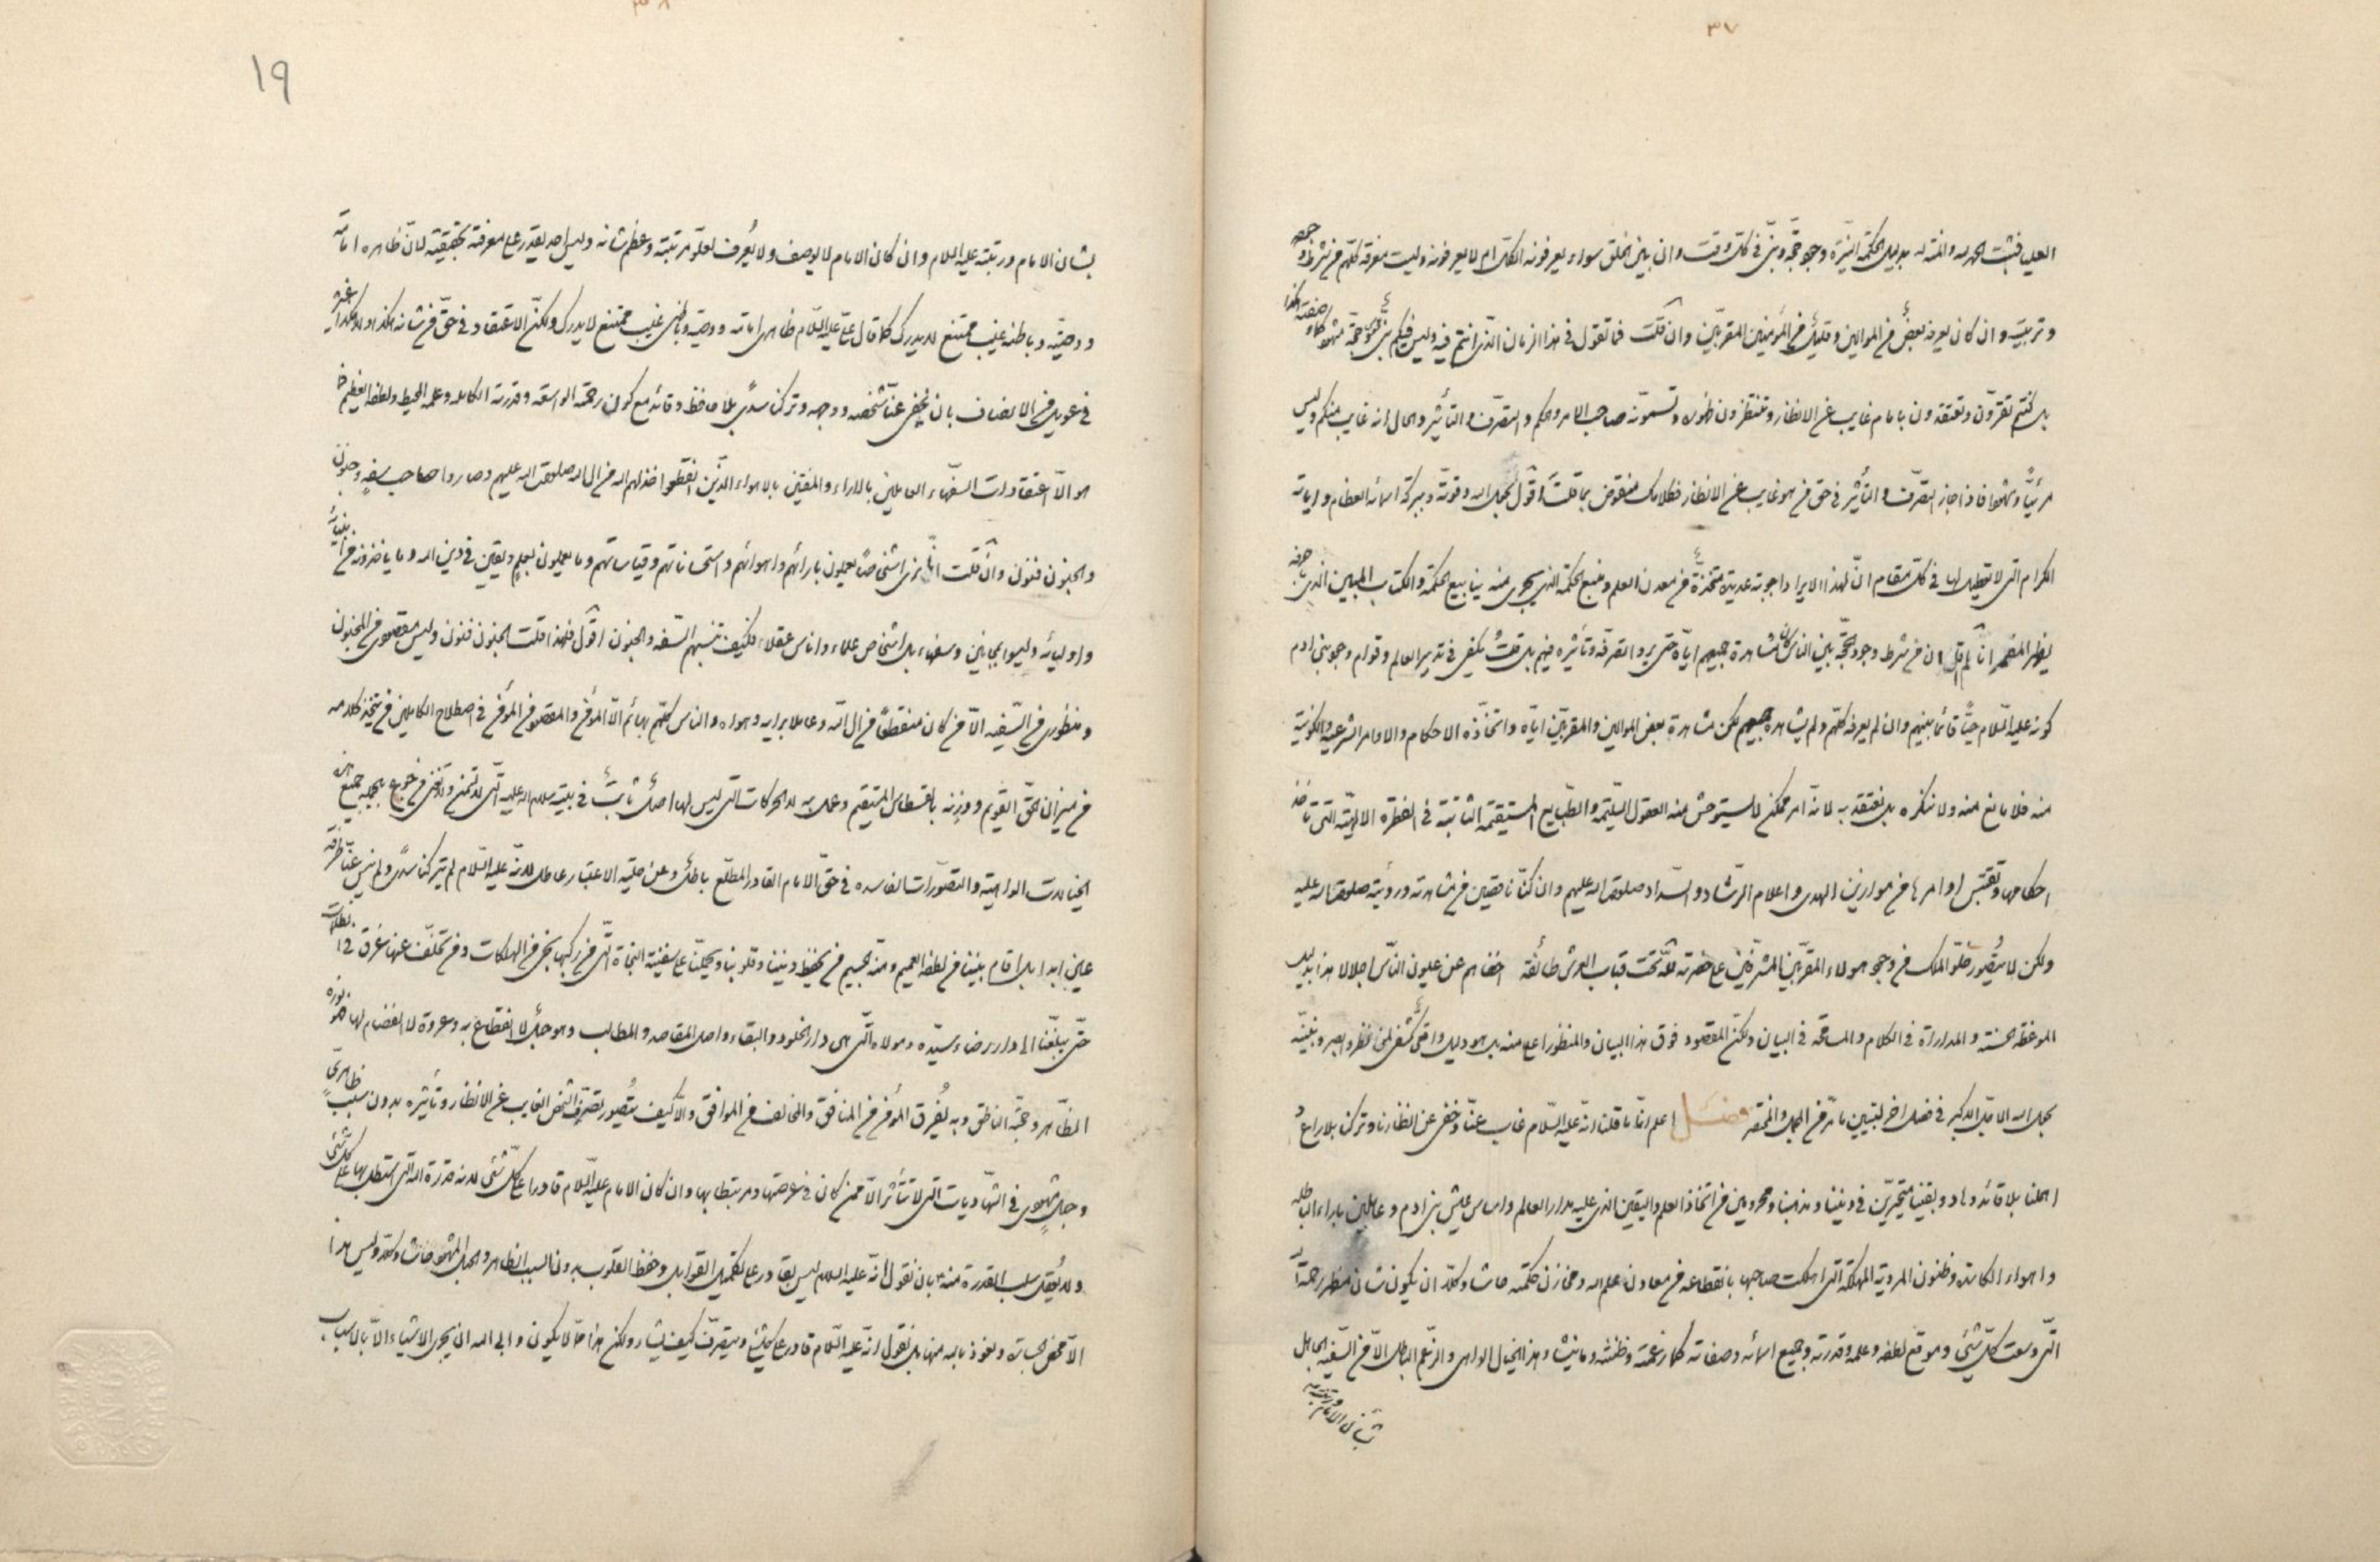 ٣٧
العلي فثبت الحمد لله والمنة له بدليل الحكمة النيرة وجود حجة ونبي في كل وقت وان بين الخلق سواء يعرفونه الكل ام لا يعرفونه وليست معرفة كلهم من شرط
وتربيته وان كان يعرفه بعض من الموالين وقليل من المؤمنين المقربين وان قلت فما تقول في هذا الزمان الذي انتم فيه وليس فيكم نبي وحجة مشهود
بل كنتم تقرون وتعتقدون بامام غايب عن الانظار وتنتظرون ظهوره وتسمونه صاحب الامر والحكم والتصرف والتأثير والحال انه غايب منكم وليس
مرئيا ومشهودا فاذا جاز التصرف والتأثير في حق من هو غايب عن الانظار فكلامك منقوض بما قلت اقول بحول الله وقوته وببركة اسمائه العظام واياته
الكرام التي لا تعطيل لها في كل مقام ان لهذا الايراد اجوبة عديدة متخذة من معدن العلم ومنبع الحكمة الذي يجري منه ينابيع الحكمة والكتاب المبين الذي باحرفه
يظهر المضمر انا لم نقل ان من شرط وجود الحجة بين الناس كان مشاهدة جميعهم اياه حتى يردوا تصرفه وتأثيره فيهم بل قلت يكفي في تدبير العالم وقوام وجود بني ادم
كونه عليه السلام حيا قائما بينهم وان لم يعرفه كلهم ولم يشاهده جميعهم لكن مشاهدة بعض الموالين والمقربين اياه واتخاذه الاحكام والاوامر الشرعية والكونية
منه فلا مانع منه ولا ننكره بل نعتقد به لانه امر ممكن لا يستوحش منه العقول السليمة والطبايع المستقيمة الثابتة في الفطرة الالهية التي تأخذ
احكامها وتقتبس اوامرها من موازين الهدى واعلام الرشاد والسداد صلوات الله عليهم وان كنا ناقصين من مشاهدته ورؤيته صلوات الله عليه
ولكن لا يتصور خلو الملك من وجود هؤلاء المقربين المشرفين على حضرته لله تحت قباب العرش طائفة اخفاهم عن عيون الناس اجلالا هذا بدليل
الموعظة الحسنة والمداراة في الكلام والمسامحة في البيان ولكن المقصود فوق هذا البيان والمنظور اعلى منه بل هو دليل واضح كشفي لمن نظر وابصر ونبينه
بحول الله الاجل الاكبر في فصل اخر لتبيين ما مر من المجمل والمختصر فصل اعلم انا ما قلنا انه عليه السلام غاب عنا وخفى عن انظارنا وتركنا بلا راع و
اهملنا بلا قائد وهاد وبقينا متحيرين في ديننا ومذهبنا ومحرومين من اتخاذ العلم واليقين الذي عليه مدار العالم واساس عيش بني ادم وعاملين باراء الباطله
واهواء الكاسدة وظنون المردية المهلكة التي اهلكت صاحبها بانقطاعه من معادن علم الله ومخازن حكمته حاشا وكلا ان يكون شان مظهر رحمة الله
التي وسعت كل شيئ وموقع لطفه وعلمه وقدرته وجميع اسمائه وصفاته كما زعمته وظننته وما ينشاء هذا الخيال الواهي والزعم الباطل الا من السفيه الجاهل
بشان الامام ورتبته
٣٨
١٩
بشان الامام ورتبته عليه السلام وان كان الامام لا يوصف ولا يعرف لعلو مرتبته وعظم شانه وليس احد يقدر على معرفة بحقيقته لان ظاهره امامة
ووصية وباطنه غيب ممتنع لا يدرك كما قال علي عليه السلام ظاهري امامة ووصية وباطني غيب ممتنع لا يدرك ولكن الاعتقاد في حق من شانه هكذا
بان يخفى عنا شخصه ووجهه وتركنا سدى بلا حافظ وقائد مع كون رحمته الواسعة وقدرته الكاملة وعلمه المحيط ولطفه العظيم
هو الا اعتقادات السفهاء العاملين بالاراء والمفتين بالاهواء الذين انقطعوا اخذهم العلم من ال الله صلوات الله عليهم وصاروا صاحب سفه وجنون
والجنون فنون وان قلت انا نرى اشخاصا يعملون بارائهم واهوائهم واستحساناتهم وقياساتهم وما يعملون بعلم ويقين في دين الله وما ياخذونه من انبيائه
واوليائه وليسوا بمجانين وسفهاء بل اشخاص علماء واناس عقلاء فكيف تنسبهم السفه والجنون اقول فلهذا قلت الجنون فنون وليس مقصودي من المجنون
ومنظوري من السفيه الا من كان منقطعا من ال الله وعاملا برايه وهواه والناس كلهم بهائم الا المؤمن والمقصود من المؤمن في اصطلاح الكاملين من يتخذ كلامه
من ميزان الحق القويم ووزنه بالقسطاس المستقيم وعمله به لا الحركات التي ليس لها اصل ثابت في بيته سلام الله عليه التي لا تسمن ولا تغني من جوع
الخيالات الواهية والتصورات الفاسدة في حق الامام القادر المطلع باطل وعن حلية الاعتبار عاطل لانه عليه السلام لم يتركنا سدى ولم ينس عنا طرفة
عين ابدا بل اقام بيننا من لطفه العميم ومنه الجسيم من يحفظ ديننا وقلوبنا ويحملنا على سفينة النجاة التي من ركبها نجى من الهلكات ومن تخلف عنها غرق
حتى يبلغنا الى دار رضاء سيده ومولاه التي هي دار الخلود والبقاء واصل المقاصد والمطالب وهو حبل لا انقطاع به وعروة لا انفصام لها هو نوره
الظاهر وحجته الناطق وبه يفرق المؤمن من المنافق والمخالف من الموافق والا كيف يتصور تصرف الشخص الغايب عن الانظار وتأثيره بدون سبب ظاهري
وحبل شهودي في الشهاديات التي لا تتأثر الا ممن كان في عرصتها ومرتبطا بها وان كان الامام عليه السلام قادرا على كل شيئ لانه قدرة الله التي استطال بها على كل شيئ
ولا يعقل سلب القدرة منه بان نقول انه عليه السلام ليس بقادر على تكميل القوابل وحفظ القلوب بدون السبب الظاهر والحبل المشهود حاشا وكلا وليس هذا
الا محض الجسارة ونعوذ بالله منها بل نقول انه عليه السلام قادر على كل شيئ ويتصرف كيف يشاء ولكن هذا مما لا يكون وابى الله ان يجري الاشياء الا بالاسباب